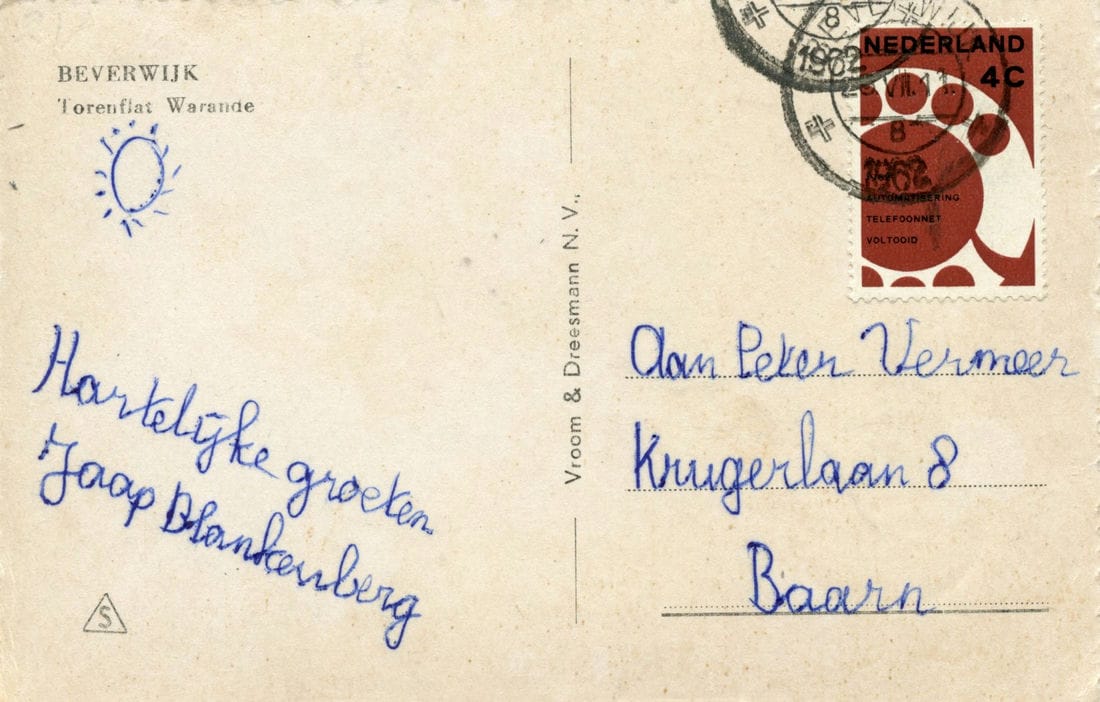 BEVERWIJK
Torenflat Warande
Hartelijke groeten
Jaap Blankenberg
S
Vroom & Dreesmann N. V.,
NEDERLAND
4 C
AUTOMATISERING
TELEFOONNET
VOLTOOID
8
1962
VII.11.
8
1962
Aan Peter Vermeer
Krugerlaan 8
Baarn